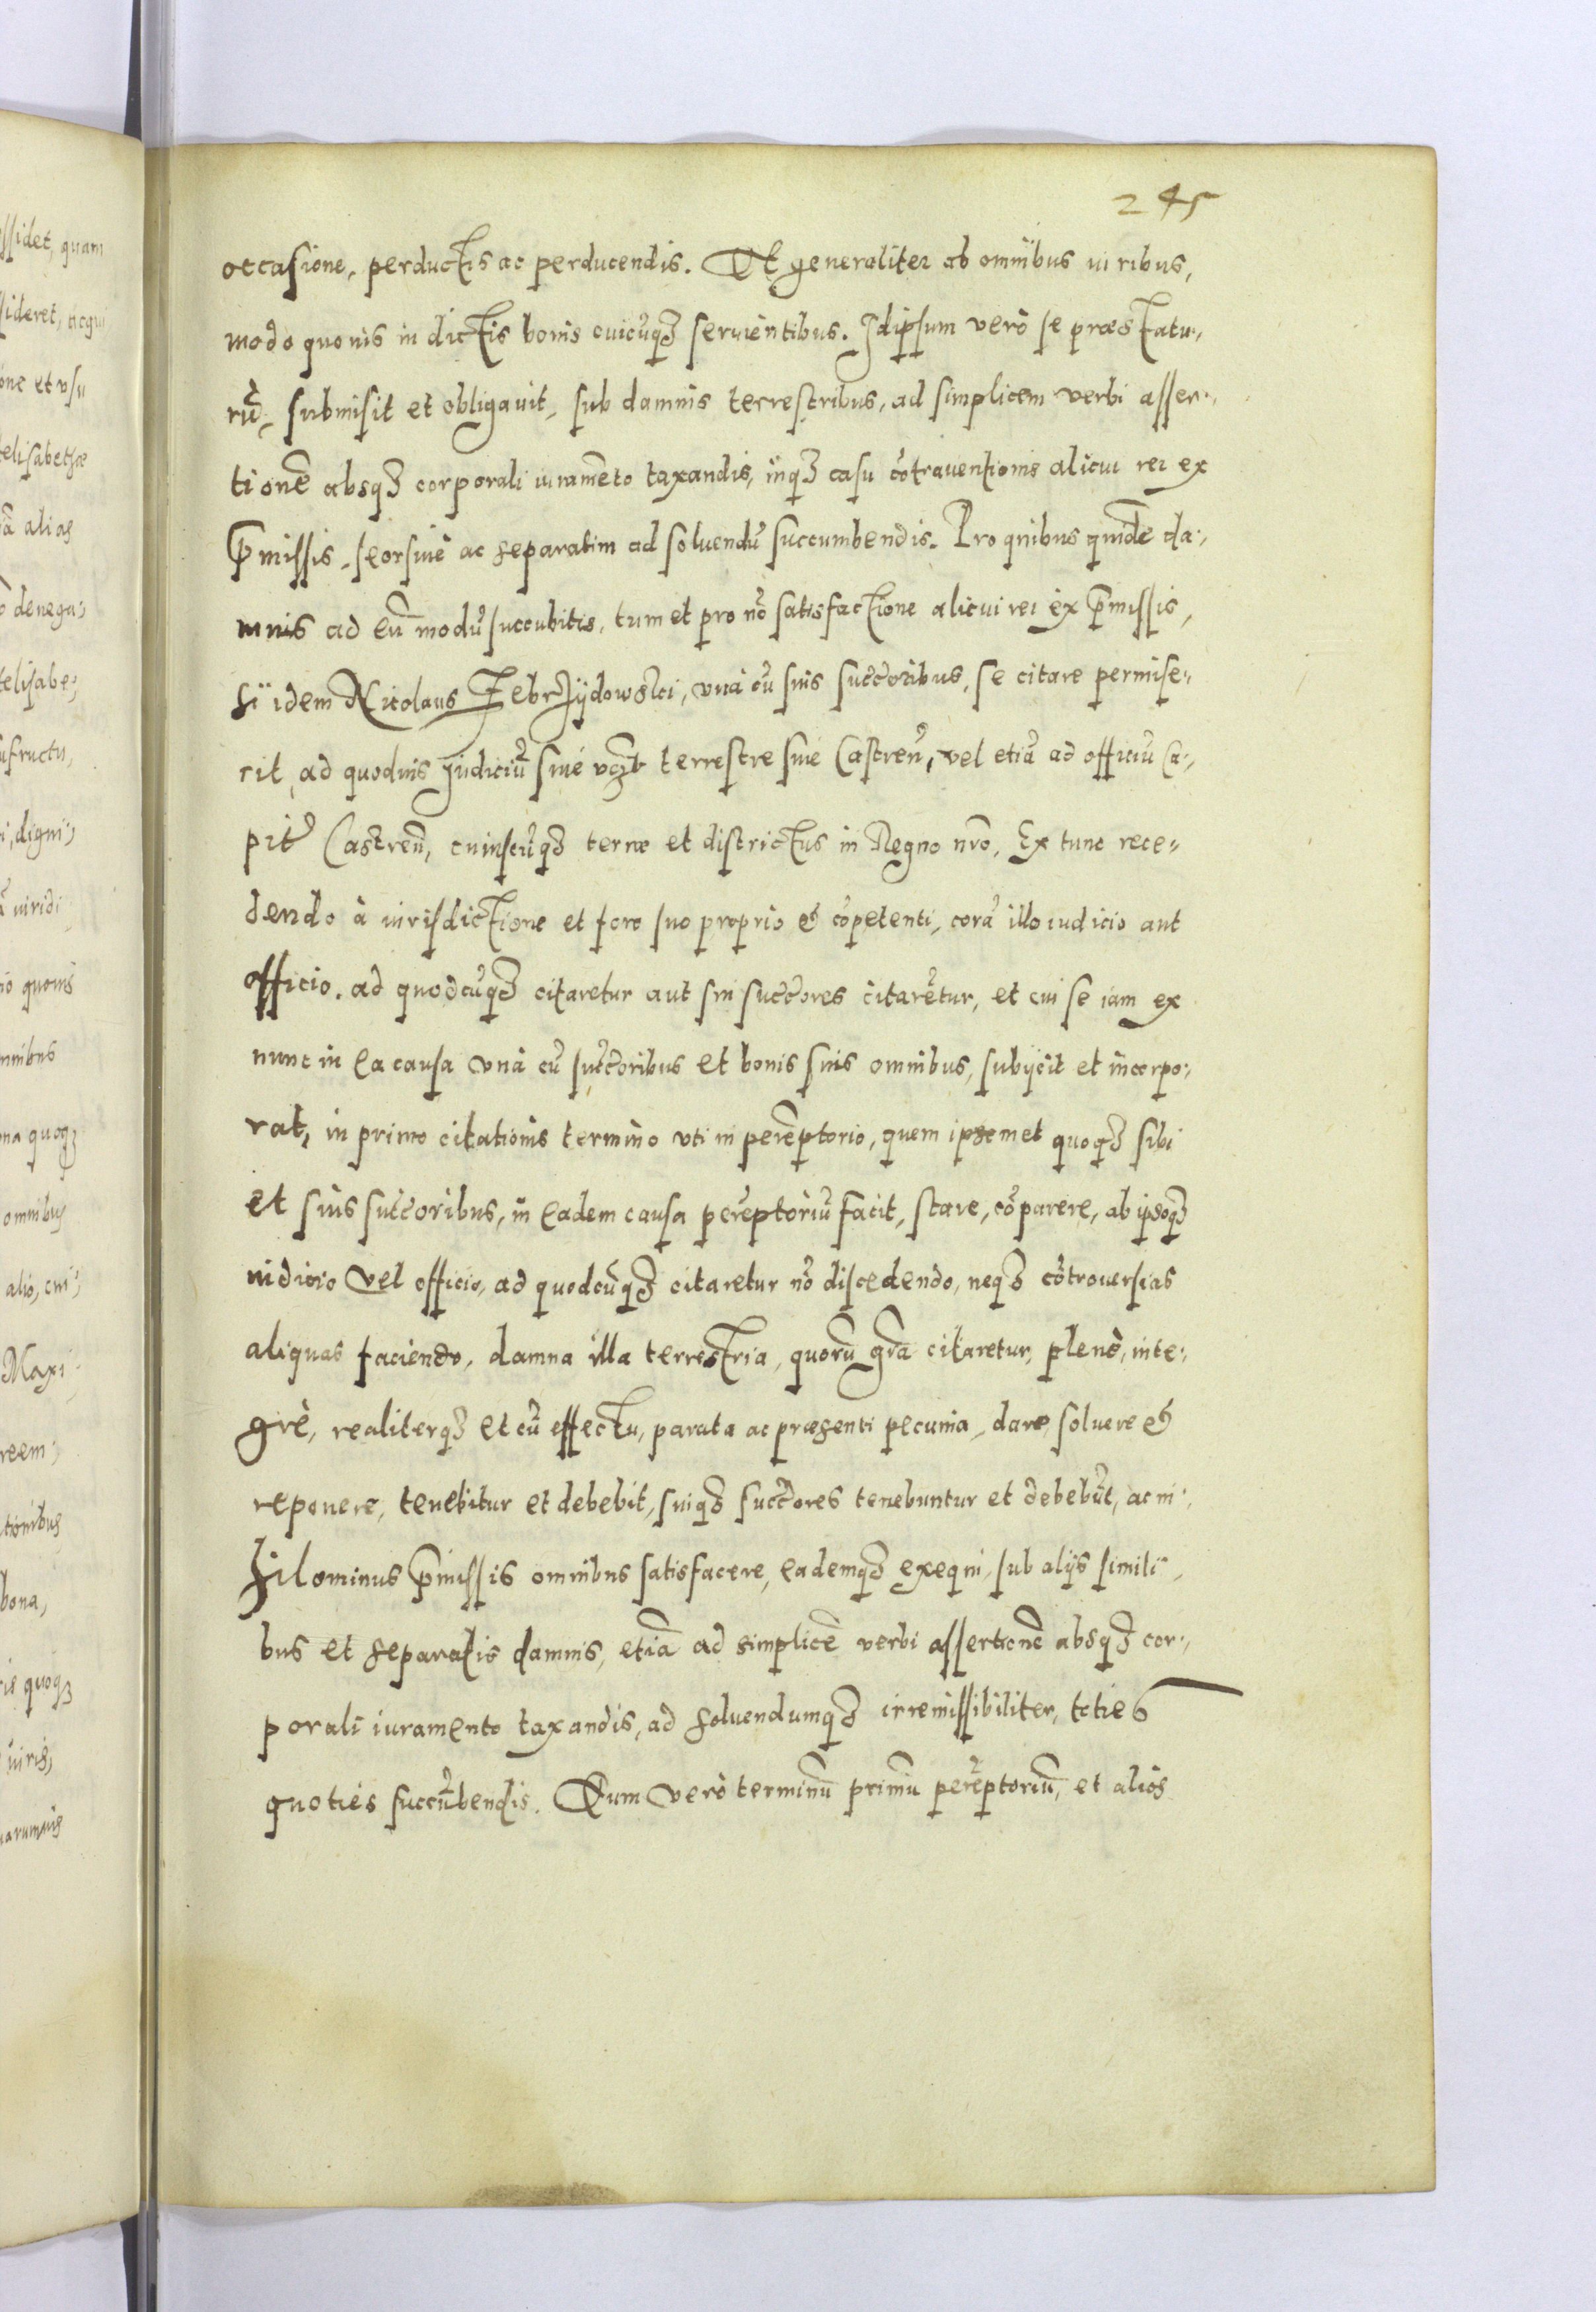 245
occasione, perductis ac perducendis. Et generaliter ab omnibus iuribus,
modo quouis in dictis bonis cuicūq₃ seruientibus. Idipsum verò se præstatu,,
rū, submisit et obligauit, sub damnis terrestribus, ad simplicem verbi asser,,
tionē absq₃ corporali iuramēto taxandis, inq₃ casu cōtrauentionis alicui rei ex
p̄missis, seorsiuè ac separatim ad soluendū succumbendis. Pro quibus quidē da,,
mnis ad eū modū succubitis, tum et pro nō satisfactione alicui rei ex p̄missis,
si idem Nicolaus Zebrzydowski, vnà cū suis succ̄oribus, se citare permise,,
rit, ad quoduis Iudiciū siue terrestre siue Castreñ, vel etiā ad officiū Ca,,
pit̄ Castreñ, cuiuscūq₃ terræ et districtus in Regno nr̄o, Ex tunc rece,,
dendo à iurisdictione et foro suo proprio & cōpetenti, corā illo iudicio aut
officio, ad quodcūq₃ citaretur aut sui succ̄ores citarētur, et cui se iam ex
nunc in ea causa vnà cū succ̄oribus et bonis suis omnibus, subijcit et incorpo,,
rat, in primo citationis termino vti in perēptorio, quem ipsemet quoq₃ sibi
et suis succ̄oribus, in eadem causa perēptoriū facit, stare, cōparere, ab ipsoq₃
iudicio vel officio, ad quodcūq₃ citaretur nō discedendo, neq₃ cōtrouersias
aliquas faciendo, damna illa terrestria, quorū gr̄a citaretur, plenè, inte,,
grè, realiterq₃ et cū effectu, parata ac præsenti pecunia, dare, soluere &
reponere, tenebitur et debebit, suiq₃ succ̄ores tenebuntur et debebūt, ac ni,,
hilominus p̄missis omnibus satisfacere, eademq₃ exequi, sub alijs simili,,
bus et separatis damnis, etiā ad simplicē verbi assertionē absq₃ cor,,
porali iuramento taxandis, ad soluendumq₃ irremissibiliter, toties
quoties succūbendis. Dum verò terminū primū perēptoriū, et alios